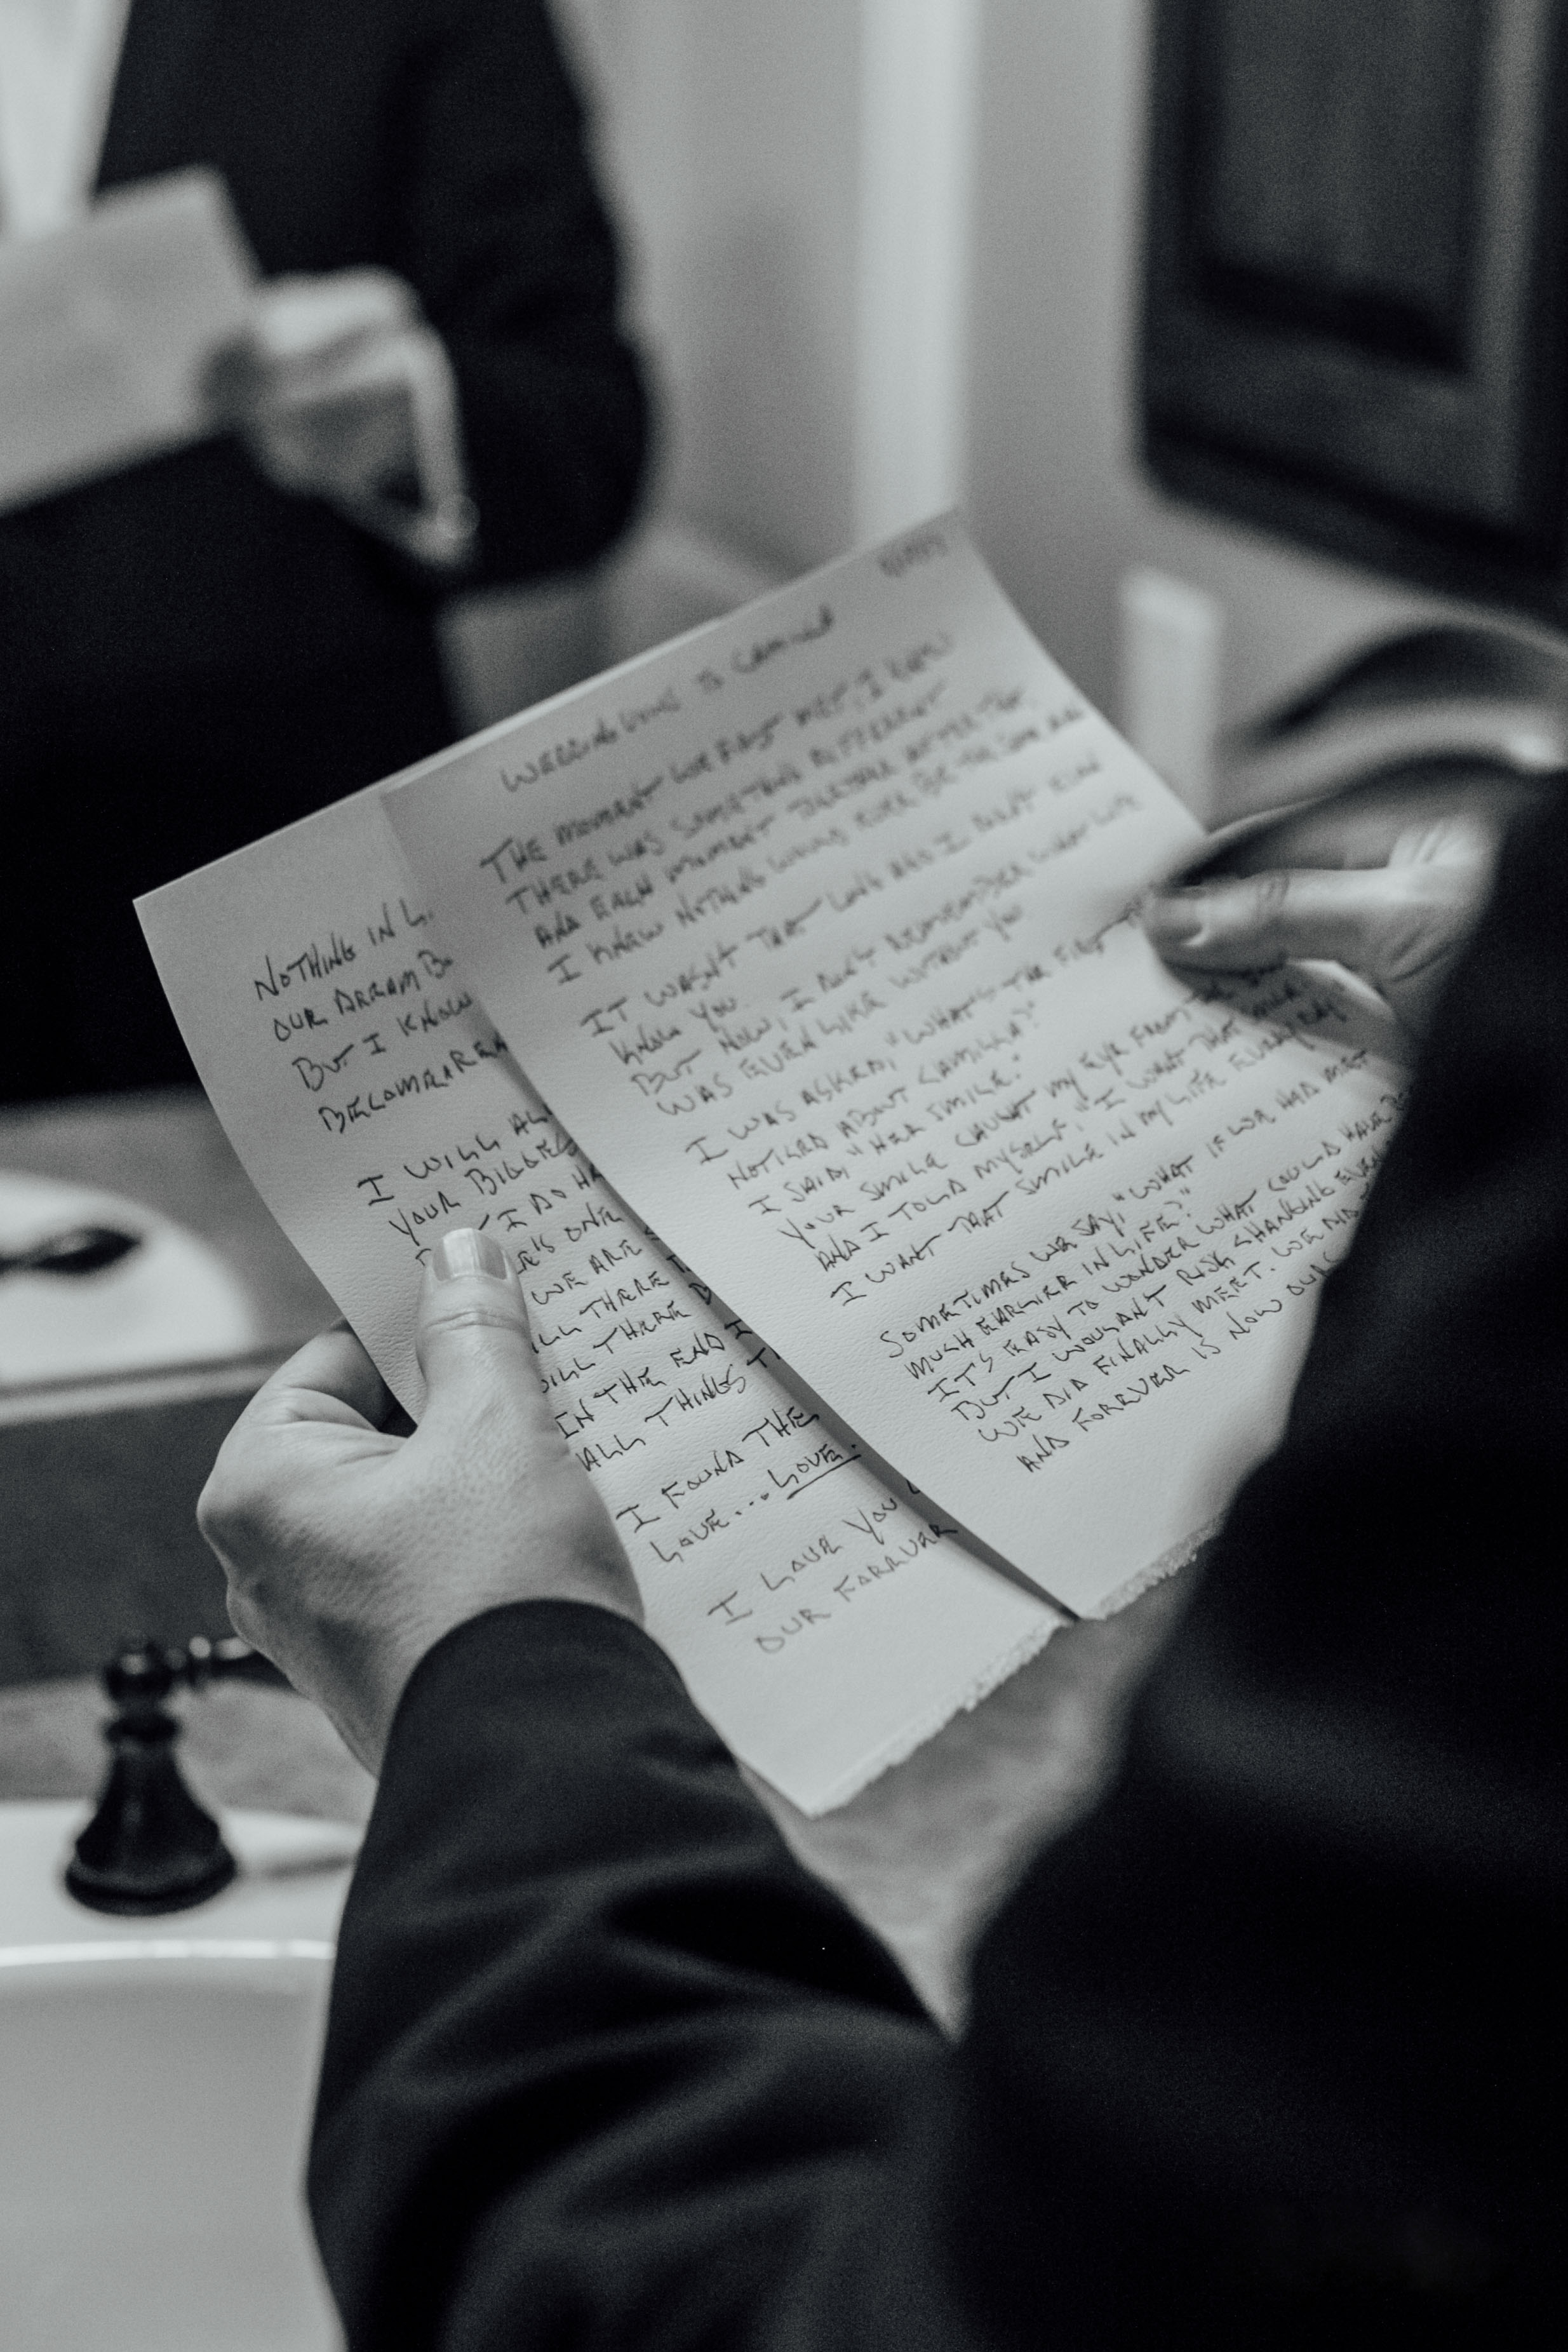 WEDDING VOWS TO CAMILLA
THE MOMENT WE FIRST MET, I KNEW
THERE WAS SOMETHING DIFFERENT
AND EACH MOMENT TOGETHER AFTER THAT,
I KNEW NOTHING WOULD EVER BE THE SAME
IT WASN'T THAT LONG AGO I DIDN'T EVEN
KNOW YOU.
BUT NOW, I DON'T REMEMBER WHAT LIFE
WAS EVEN LIKE WITHOUT YOU
I WAS ASKED, "WHAT'S THE FIRST
NOTICED ABOUT CAMILLA?"
I SAID, "HER SMILE."
YOUR SMILE CAUGHT MY EYE FROM THE
AND I TOLD MYSELF, "I WANT THAT
I WANT THAT SMILE IN MY LIFE EVERYDAY"
SOMETIMES WE SAY, "WHAT IF WE HAD MET
MUCH EARLIER IN LIFE?"
IT'S EASY TO WONDER WHAT COULD HAVE
BUT I WOULDN'T RISK CHANGING
WE DID FINALLY MEET. WE DID
AND FOREVER IS NOW OURS
NOTHING IN L
OUR DREAM
BUT I KNOW
BECOME A REA
I WILL AL
YOUR BIGGES
"I DO HA
E'S ONE
WE ARE
LL THERE
ILL THERE
IN THE END I
ALL THINGS
I FOUND THE
LOVE... LOVE.
I LOVE YOU
OUR FOREVER